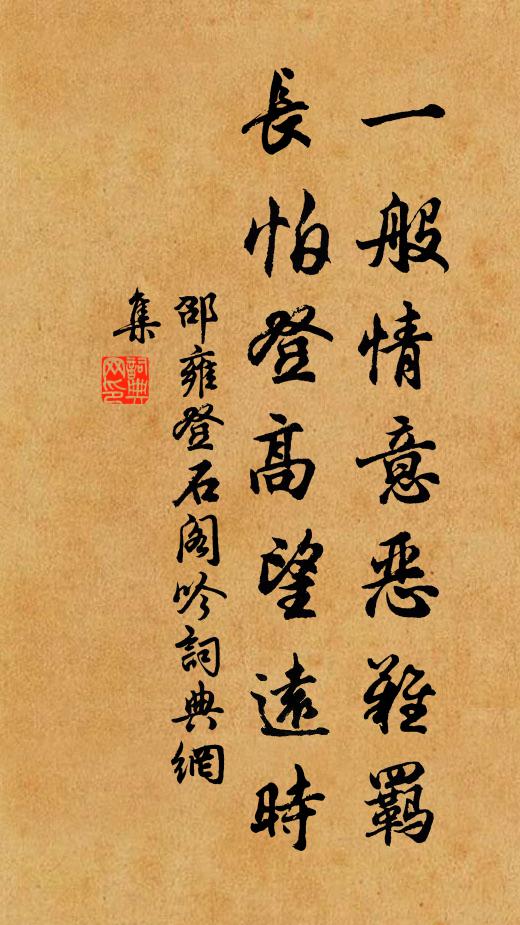 一般情意惡難羈
長怕登高望遠時
邵雍登石閣吟詞典網
集
詞典网印